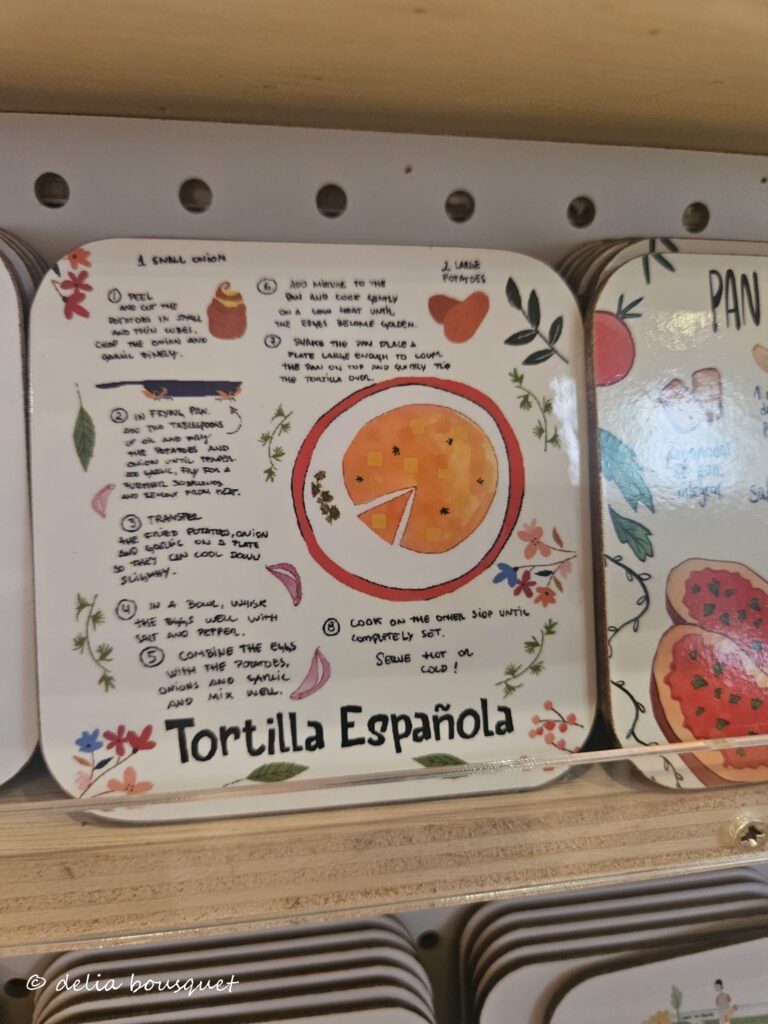 1 SMALL ONION
2 LARGE
POTATOES
① PEEL
AND CUT THE
POTATOES IN SMALL
AND THIN CUBES.
CHOP THE ONION AND
GARLIC FINELY.
② IN FRYING PAN.
ADD TWO TABLESPOONS
OF OIL AND FRY
THE POTATOES AND
ONION UNTIL TENDER.
ADD GARLIC, FRY FOR A
FURTHER 30 SECONDS
AND REMOVE FROM HEAT.
③ TRANSFER
THE FRIED POTATOES, ONION
AND GARLIC ON A PLATE
SO THEY CAN COOL DOWN
SLIGHTLY.
④ IN A BOWL, WHISK
THE EGGS WELL WITH
SALT AND PEPPER.
⑤ COMBINE THE EGGS
WITH THE POTATOES,
ONIONS AND GARLIC
AND MIX WELL.
⑥ ADD MIXTURE TO THE
PAN AND COOK GENTLY
ON A LOW HEAT UNTIL
THE EDGES BECOME GOLDEN.
⑦ SHAKE THE PAN PLACE A
PLATE LARGE ENOUGH TO COVER
THE PAN ON TOP AND QUICKLY FLIP
THE TORTILLA OVER.
⑧ COOK ON THE OTHER SIDE UNTIL
COMPLETELY SET.
SERVE HOT OR
COLD!
Tortilla Española
PAN
integral
© delia bousquet